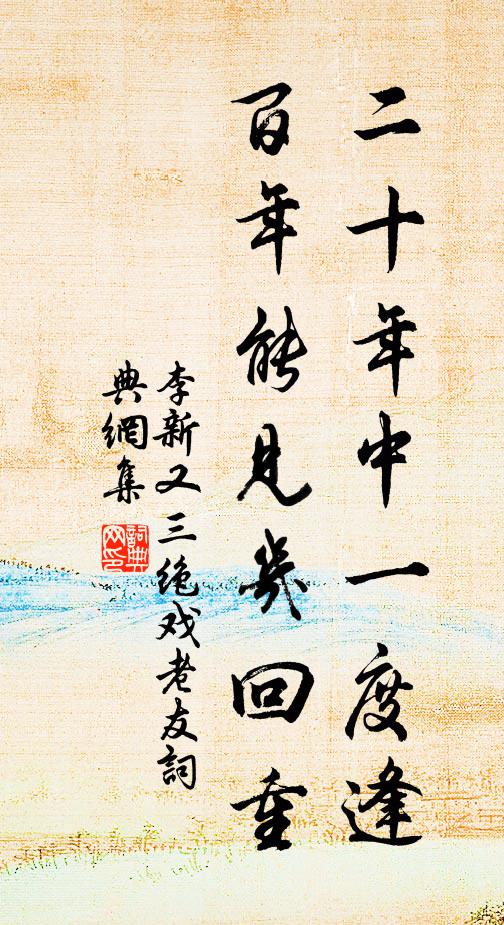 二十年中一度逢
百年能見幾回重
李新又三绝戏老友詞
典網集
詞典
网印